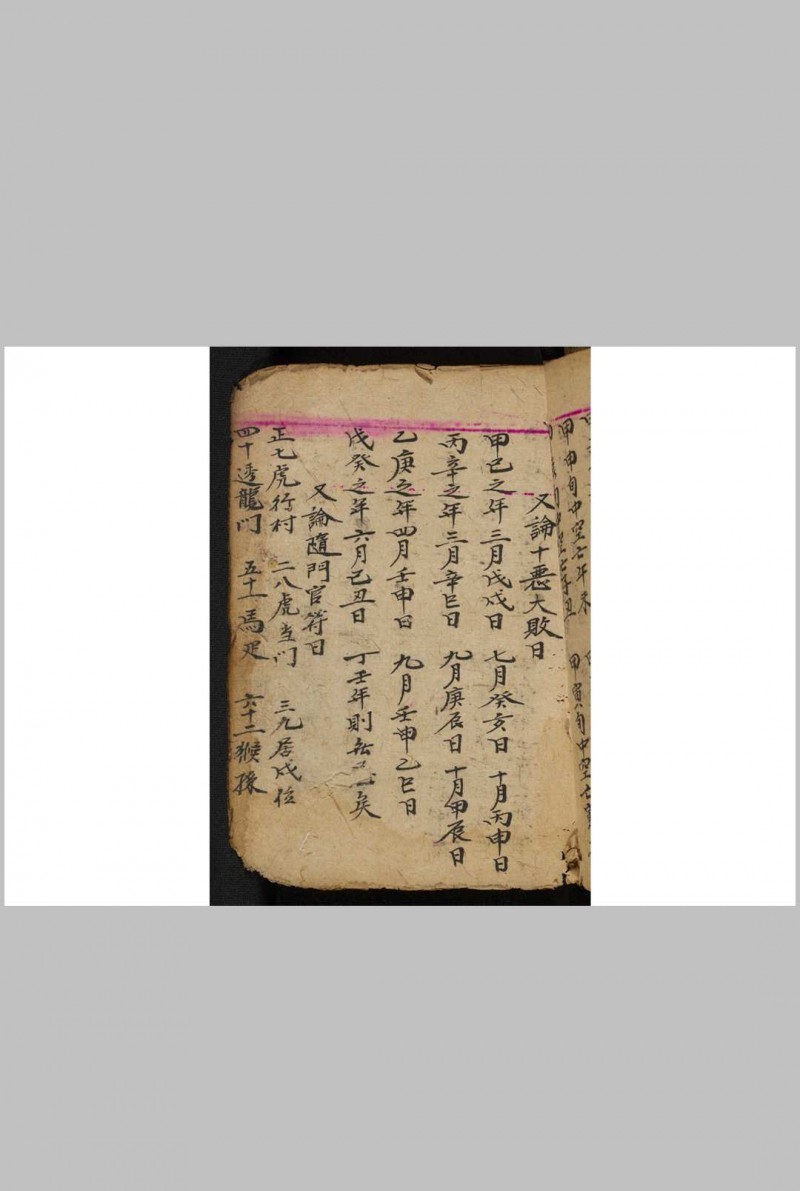 甲申旬中空亡午未
甲寅旬中空亡
又論十悪大敗日
甲己之年三月戊戌日 七月癸亥日 十月丙申日
丙辛之年三月辛巳日 九月庚辰日 十月甲辰日
乙庚之年四月壬申日 九月壬申乙巳日
戊癸之年六月己丑日 丁壬年則無 矣
又論隨門官符日
正七虎行村 二八虎当门 三九居戌位
四十透龍门 五十一馬 六十二猴猻